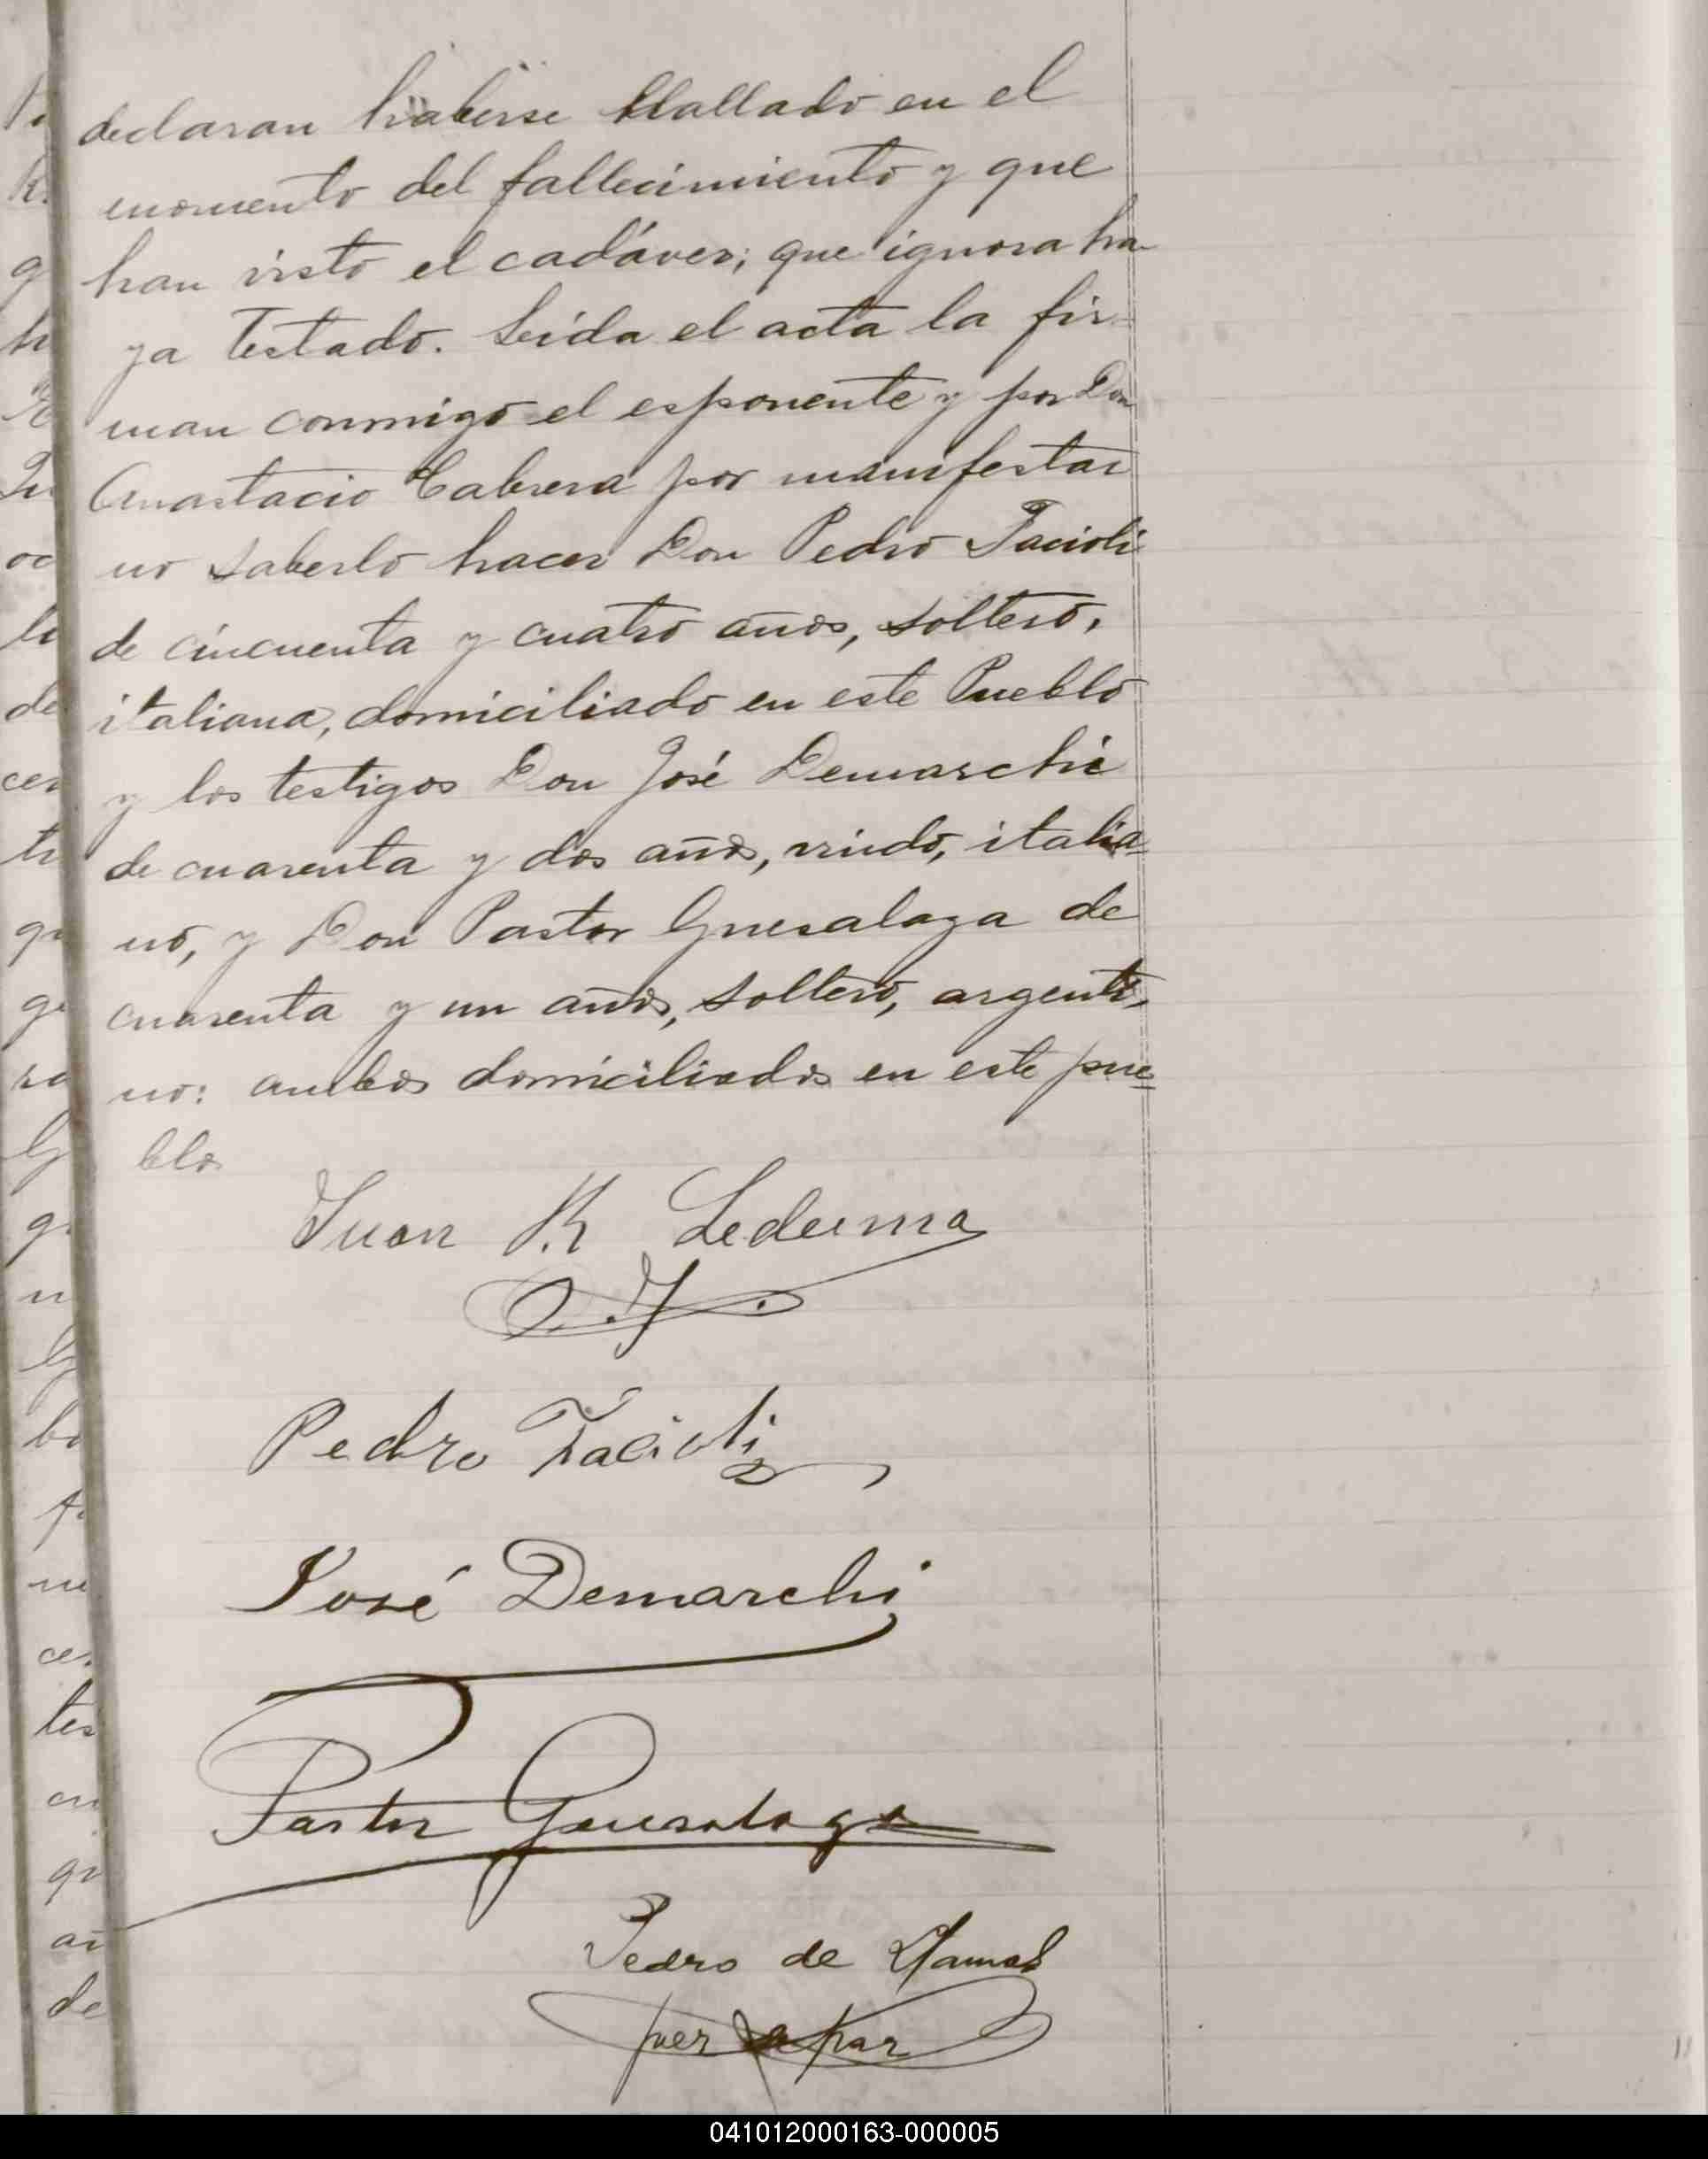 declaran haberse hallado en el
momento del fallecimiento y que
han visto el cadáver; que ignora ha
ya testado. Leída el acta la fir=
man conmigo el esponente y por Don
Anastacio Cabrera por manifestar
no saberlo hacer Don Pedro Facioli
de cincuenta y cuatro años, soltero,
italiana, domiciliado en este Pueblo
y los testigos Don José Demarchi
de cuarenta y dos años, viudo, italia=
no, y Don Pastor Guesalaga de
cuarenta y un años, soltero, argenti=
no: ambos domiciliados en este pue=
blo
Juan R Ledesma
Pedro Facioli
José Demarchi
Pastor Guesalaga
Pedro de
041012000163-000005